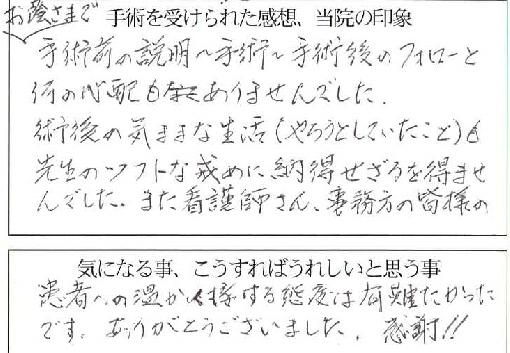 お陰さまで
手術を受けられた感想、当院の印象
手術前の説明〜手術〜手術後のフォローと
何の心配もなくありませんでした.
術後の気ままな生活(やろうとしていたこと)も
先生のソフトな戒めに納得せざるを得ませ
んでした. また看護師さん、事務方の皆様の
気になる事、こうすればうれしいと思う事
患者への温かく接する態度は有難たかった
です. ありがとうございました. 感謝!!